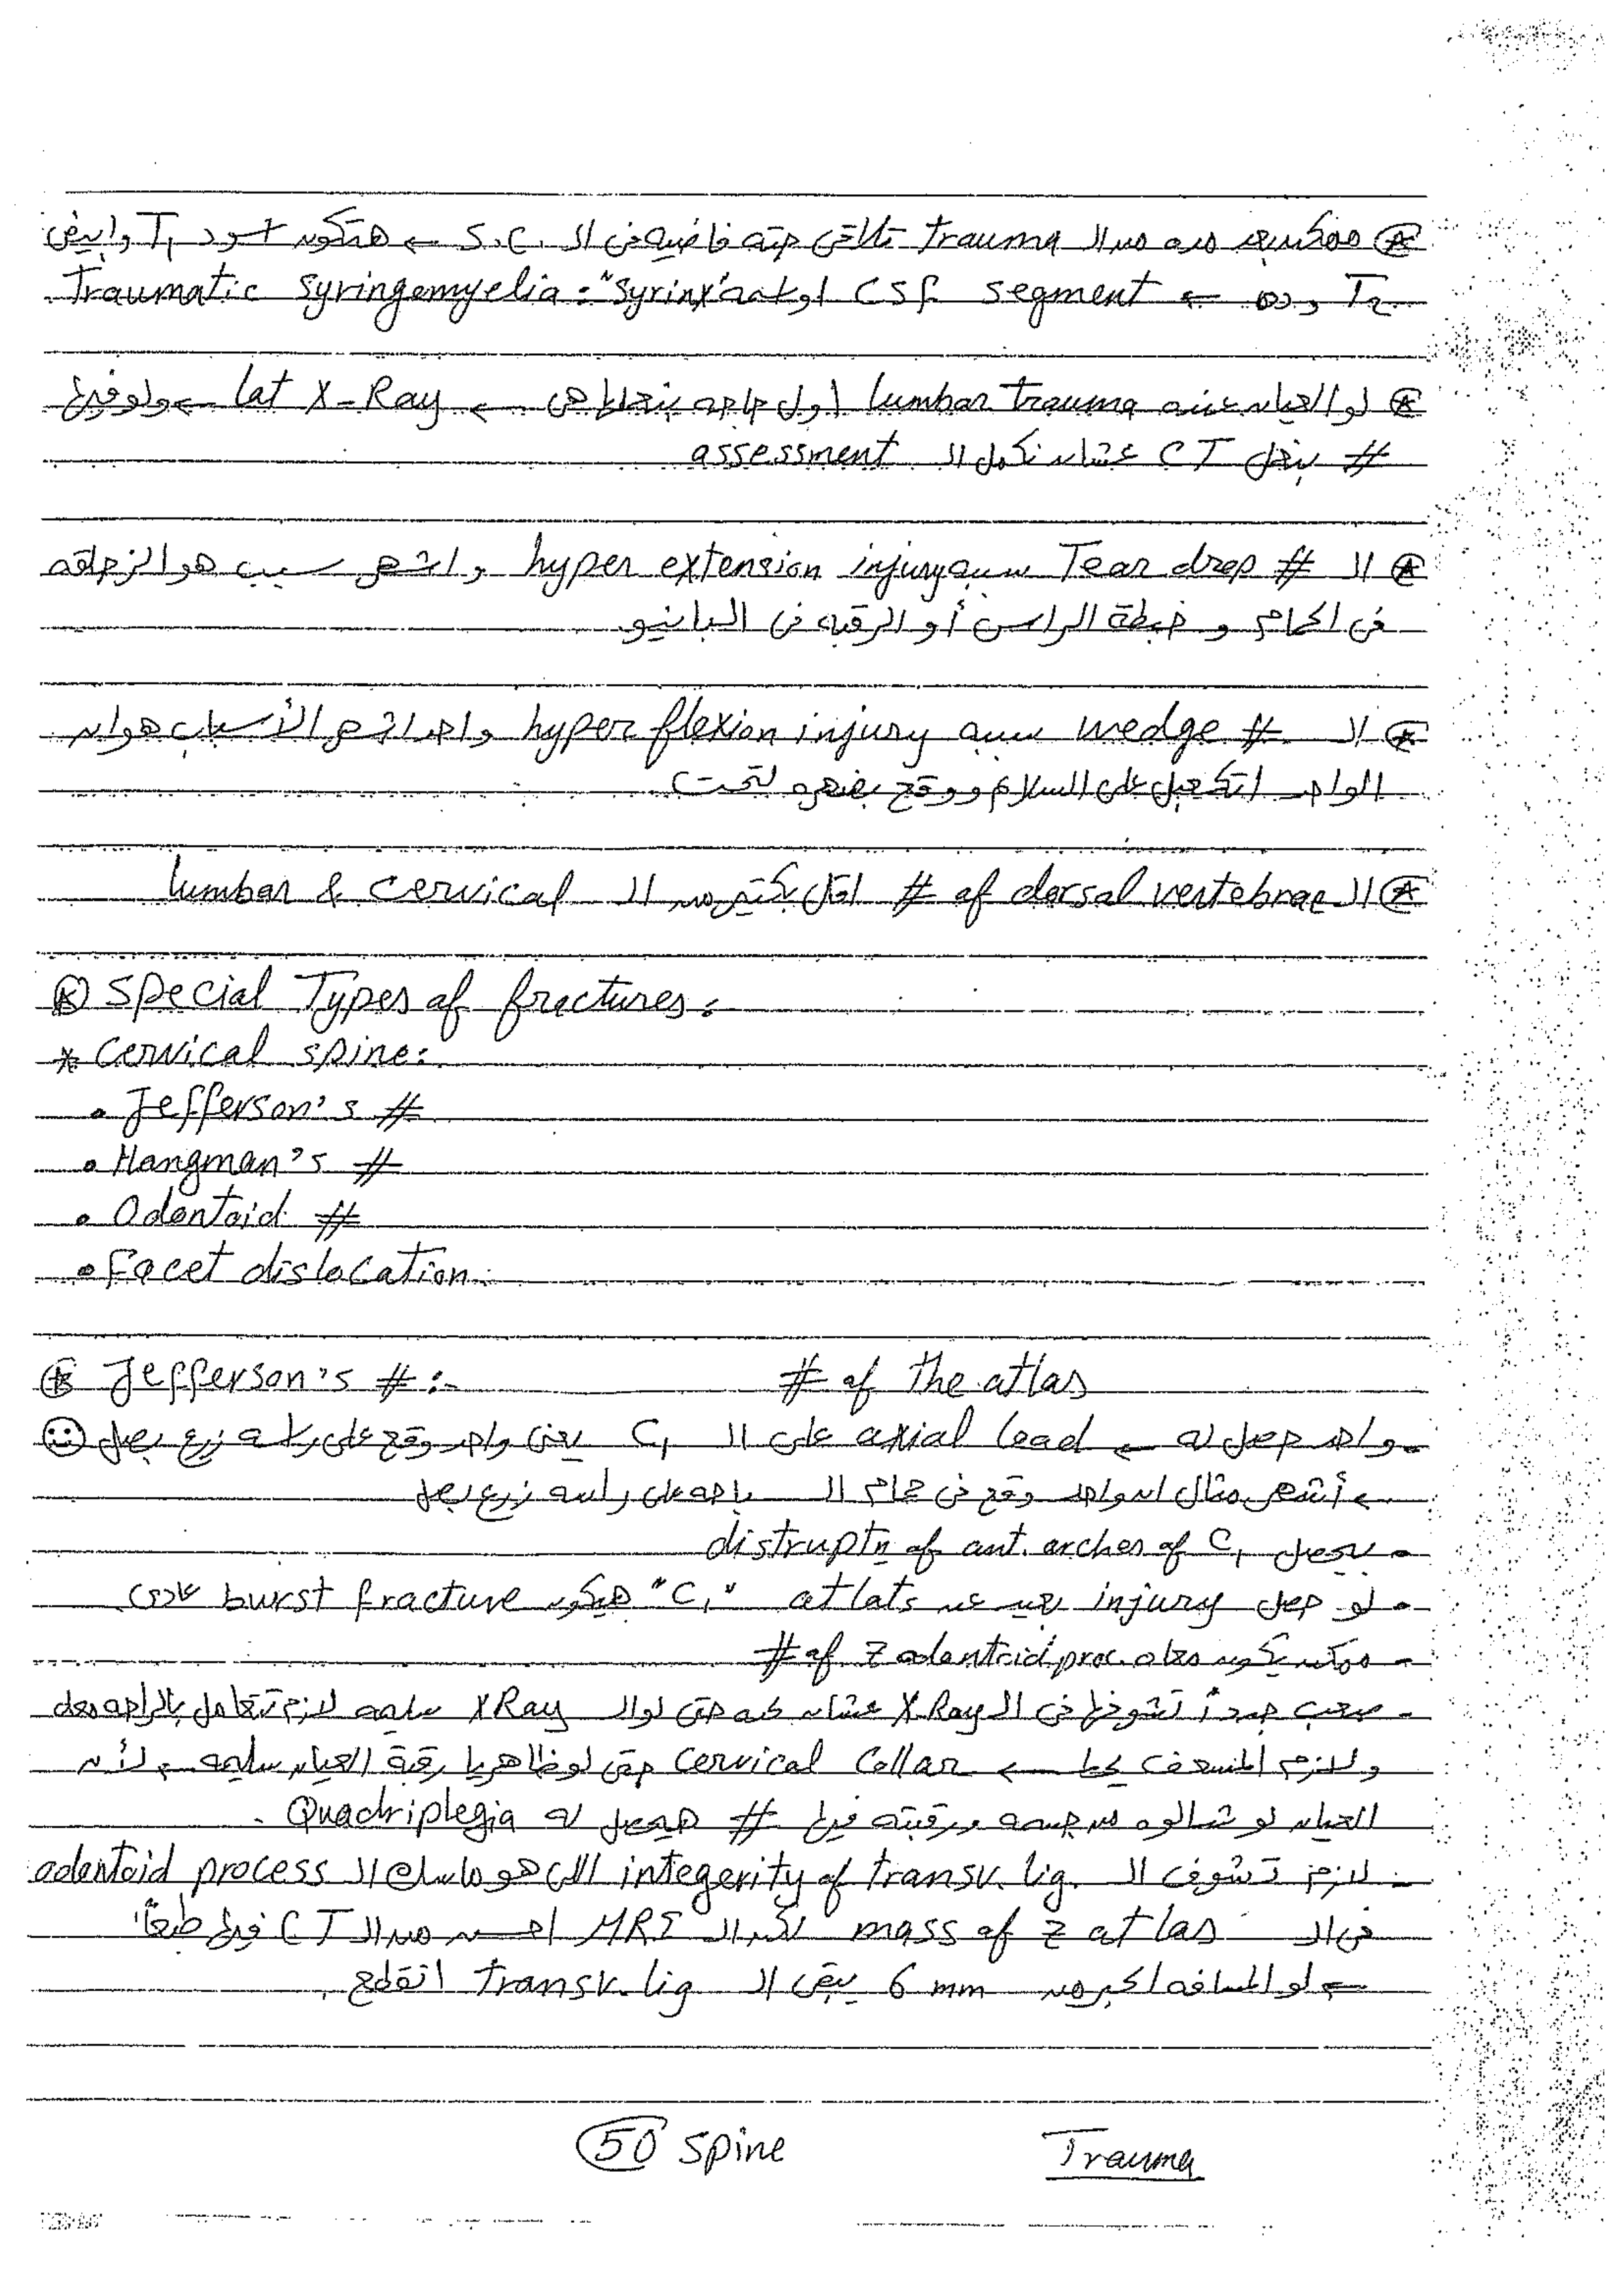 ⊛ ممكن بعد سنه من الـ trauma تلاقى حته فاضيه فى الـ S.C. ← هتكون اسود T₁ وابيض
T₂ وده ← CSF segment او اسمه "Syrinx" = Traumatic Syringomyelia
⊛ لو العيان عنده lumbar trauma اول حاجه بنعملها هى ← lat X-Ray ← ولو فيها
# بنعمل CT عشان نكمل الـ assessment
⊛ الـ # Tear drop سببه hyper extension injury واشهر سبب هو الزحلقه
فى الحمام و خبطة الراس أو الرقبه فى البانيو
⊛ الـ # wedge سببه hyper flexion injury واحد اشهر الأسباب هو ان
الواحد اتكعبل على السلام ووقع بضهره لتحت
⊛ الـ # of dorsal vertebrae اقل بكتير من الـ lumbar & cervical
⊛ Special Types of fractures:
* Cervical spine:
• Jefferson's #
• Hangman's #
• Odontoid #
• Facet dislocation
⊛ Jefferson's # :- # of the atlas
- واحد حصل له ← axial load على الـ C₁ يعنى واحد وقع على راسه زرع بصل ☺
← أشهر مثال ان واحد وقع فى حمام الـ سباحه على راسه زرع بصل
• بيحصل distruptn of ant. arches of C₁
• لو حصل injury بعيد عن atlats "C₁" هيكون burst fracture عادى
- ممكن يكون معاه # of z odentoid proc.
- صعب جداً تشوفها فى الـ X Ray عشان كده حتى لو الـ X Ray سليمه لازم تتعامل بالراحه معاه
ولازم المسعف يحط ← Cervical Collar حتى لو ظاهريا رقبة العيان سليمه، لأن
العيان لو شالوه من جسمه ورقبته فيها # هيحصل له Quadriplegia .
- لازم تشوف الـ integerity of transv. lig. اللى هو ماسك الـ odontoid process
فى الـ mass of z atlas لكن الـ MRI احسن من الـ CT فيها طبعاً
← لو المسافه اكبر من 6 mm يبقى الـ transv. lig اتقطع.
50 Spine Trauma